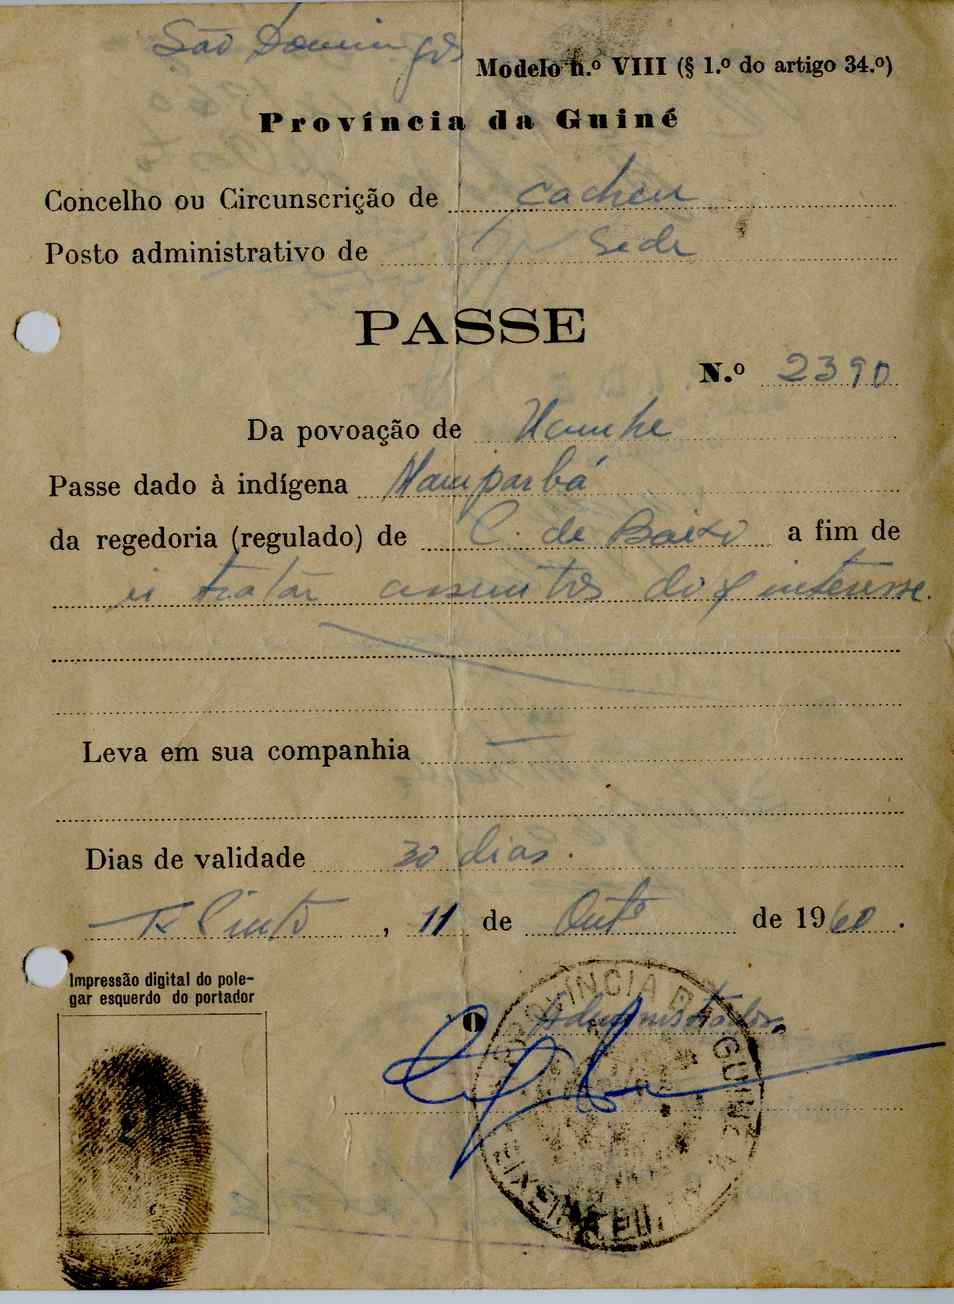 São Domingos
Modelo n.º VIII (§ 1.º do artigo 34.º)
Província da Guiné
Concelho ou Circunscrição de Cacheu
Posto administrativo de Sede
PASSE
N.º 2390
Da povoação de
Passe dado à indígena Namparbá
da regedoria (regulado) de C. de Baixo a fim de
ir tratar assuntos do interesse.
Leva em sua companhia
Dias de validade 30 dias.
T. Pinto, 11 de Outº de 1960.
Impressão digital do pole-
gar esquerdo do portador
O Administrador,
PROVÍNCIA DA GUINÉ
TEIXEIRA PINTO